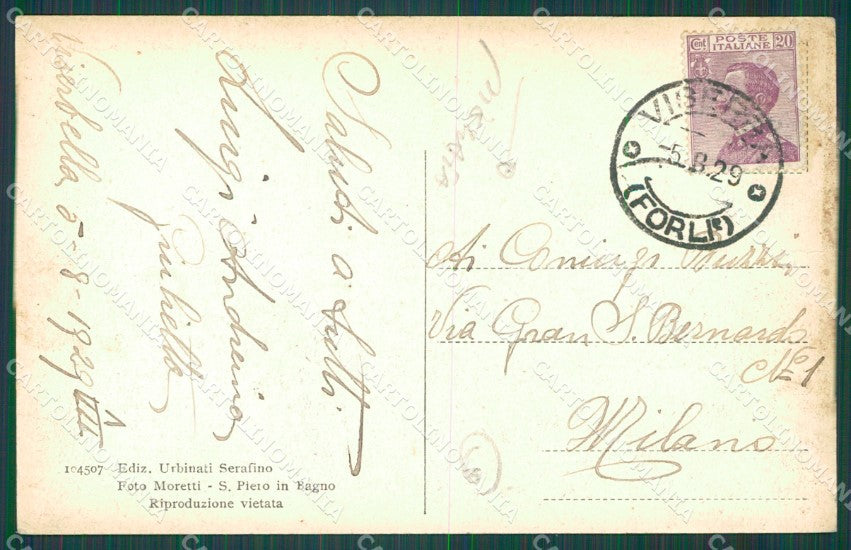 Viserbella 5-8-1929 VII
Saluti a tutti.
Luigi Andreina
Giulietta
104507 Ediz. Urbinati Serafino
Foto Moretti - S. Piero in Bagno
Riproduzione vietata
Cent POSTE ITALIANE 20
-5.8.29
(FORLI')
Ai Coniugi
Via Gran S. Bernardo
Nº 1
Milano
CARTOLINOMANIA